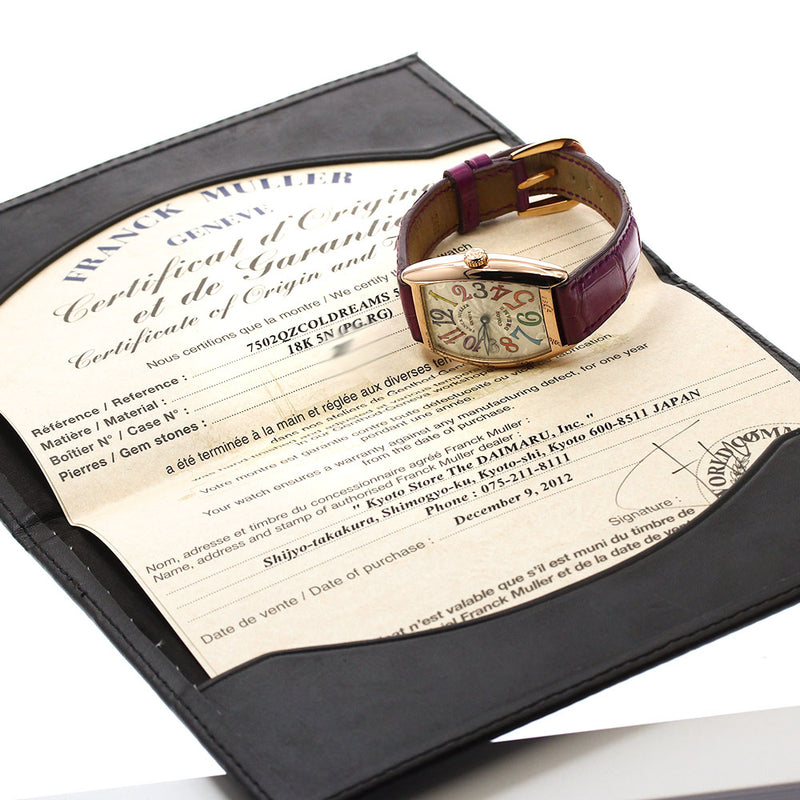 FRANCK MULLER
GENEVE
Certificat d'Origine
et de Garantie
Certificate of Origin and
Nous certifions que la montre / We certify watch
Référence / Reference : 7502QZCOLDREAMS 5
Matière / Material : 18K 5N (PG.RG)
Boîtier N° / Case N° :
Pierres / Gem stones :
a été terminée à la main et réglée aux diverses
dans nos ateliers de Genthod
Votre montre est garantie contre toute défectuosité
pendant une année.
Your watch ensures a warranty against any manufacturing defect, for one year
from the date of purchase.
Nom, adresse et timbre du concessionnaire agréé Franck Muller :
Name, address and stamp of authorised Franck Muller dealer :
" Kyoto Store The DAIMARU, Inc. "
Shijyo-takakura, Shimogyo-ku, Kyoto-shi, Kyoto 600-8511 JAPAN
Phone : 075-211-8111
Date de vente / Date of purchase : December 9, 2012
Signature :
n'est valable que s'il est muni du timbre de
Franck Muller et de la date de
WORLD